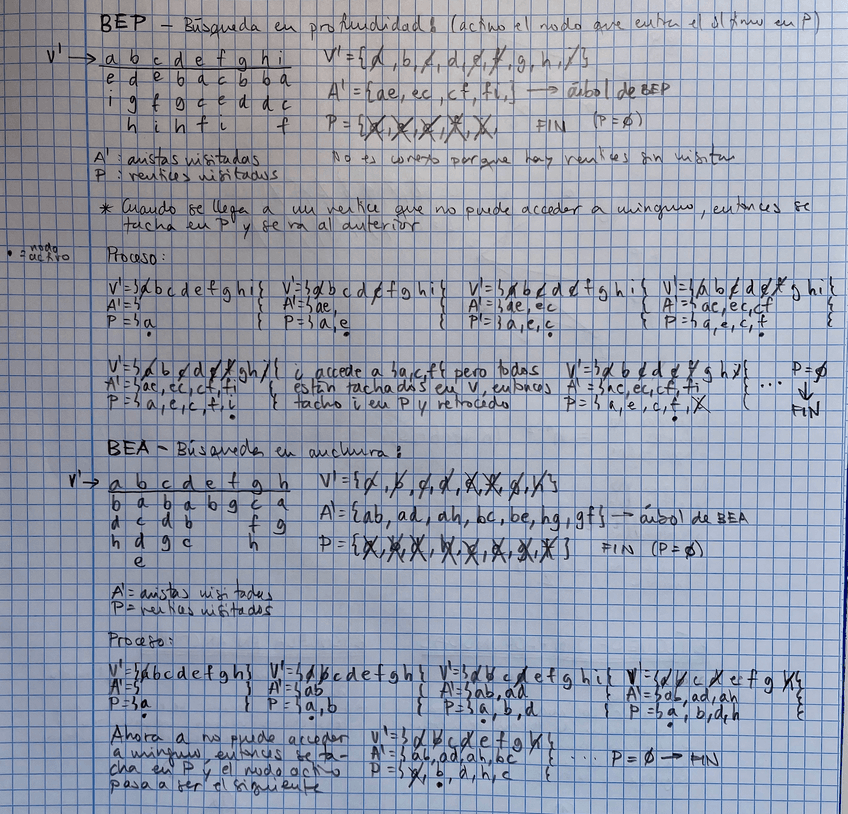 BEP - Búsqueda en profundidad: (activo el nodo que entra el último en P)
V' → a b c d e f g h i
e d e b a c b b a
i g f g c e d d c
h i h f i f
V' = {a, b, c, d, e, f, g, h, i}
A' = {ae, ec, cf, fi,} → árbol de BEP
P = {a, e, c, f, i, FIN (P = ∅)
A': aristas visitadas
P: vertices visitados
No es conexo porque hay vertices sin visitar
* Cuando se llega a un vertice que no puede acceder a ninguno, entonces se
tacha en P y se va al anterior
• = nodo activo
Proceso:
V' = {a b c d e f g h i} V' = {a b c d e f g h i} V' = {a b c d e f g h i} V' = {a b c d e f g h i}
A' = { A' = {ae, A' = {ae, ec A' = {ae, ec, cf
P = {a P = {a, e P = {a, e, c P = {a, e, c, f
V' = {a b c d e f g h i} i accede a {a, c, f} pero todos V' = {a b c d e f g h i}
A' = {ae, ec, cf, fi están tachados en V, entonces A' = {ae, ec, cf, fi
P = {a, e, c, f, i tacho i en P y retrocedo P = {a, e, c, f, i
... P = ∅
↓
FIN
BEA - Búsqueda en anchura:
V' → a b c d e f g h
b a b a b g c a
d c d b f g
h d g c h
e
V' = {a, b, c, d, e, f, g, h}
A' = {ab, ad, ah, bc, be, hg, gf} → árbol de BEA
FIN (P = ∅)
A' = aristas visitadas
P = vertices visitados
Proceso:
V' = {a b c d e f g h} V' = {a b c d e f g h} V' = {a b c d e f g h i} V' = {a b c d e f g h}
A' = { A' = {ab A' = {ab, ad A' = {ab, ad, ah
P = {a P = {a, b P = {a, b, d P = {a, b, d, h
Ahora a no puede acceder
a ninguno, entonces se ta-
cha en P y el nodo activo
pasa a ser el siguiente
V' = {a b c d e f g h}
A' = {ab, ad, ah, bc
P = {a, b, d, h, c
... P = ∅ → FIN